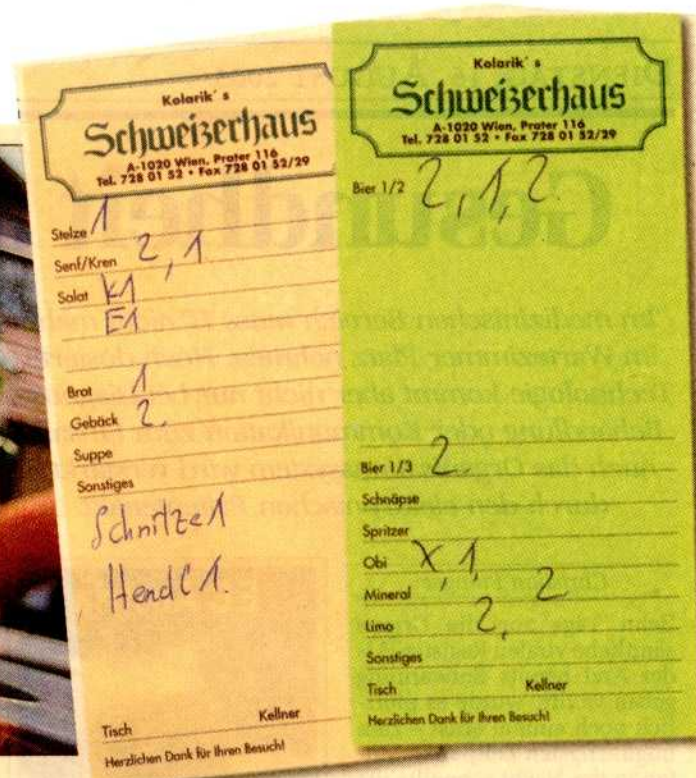 Kolarik´s
Schweizerhaus
A-1020 Wien, Prater 116
Tel. 728 01 52 • Fax 728 01 52/29
Stelze 1
Senf/Kren 2, 1
Salat K1
E1
Brot 1
Gebäck 2.
Suppe
Sonstiges
Schnitzel 1
Hendl 1.
Tisch Kellner
Herzlichen Dank für Ihren Besuch!
Kolarik´s
Schweizerhaus
A-1020 Wien, Prater 116
Tel. 728 01 52 • Fax 728 01 52/29
Bier 1/2 2, 1, 2.
Bier 1/3 2.
Schnäpse
Spritzer
Obi X, 1,
Mineral 2
Limo 2,
Sonstiges
Tisch Kellner
Herzlichen Dank für Ihren Besuch!